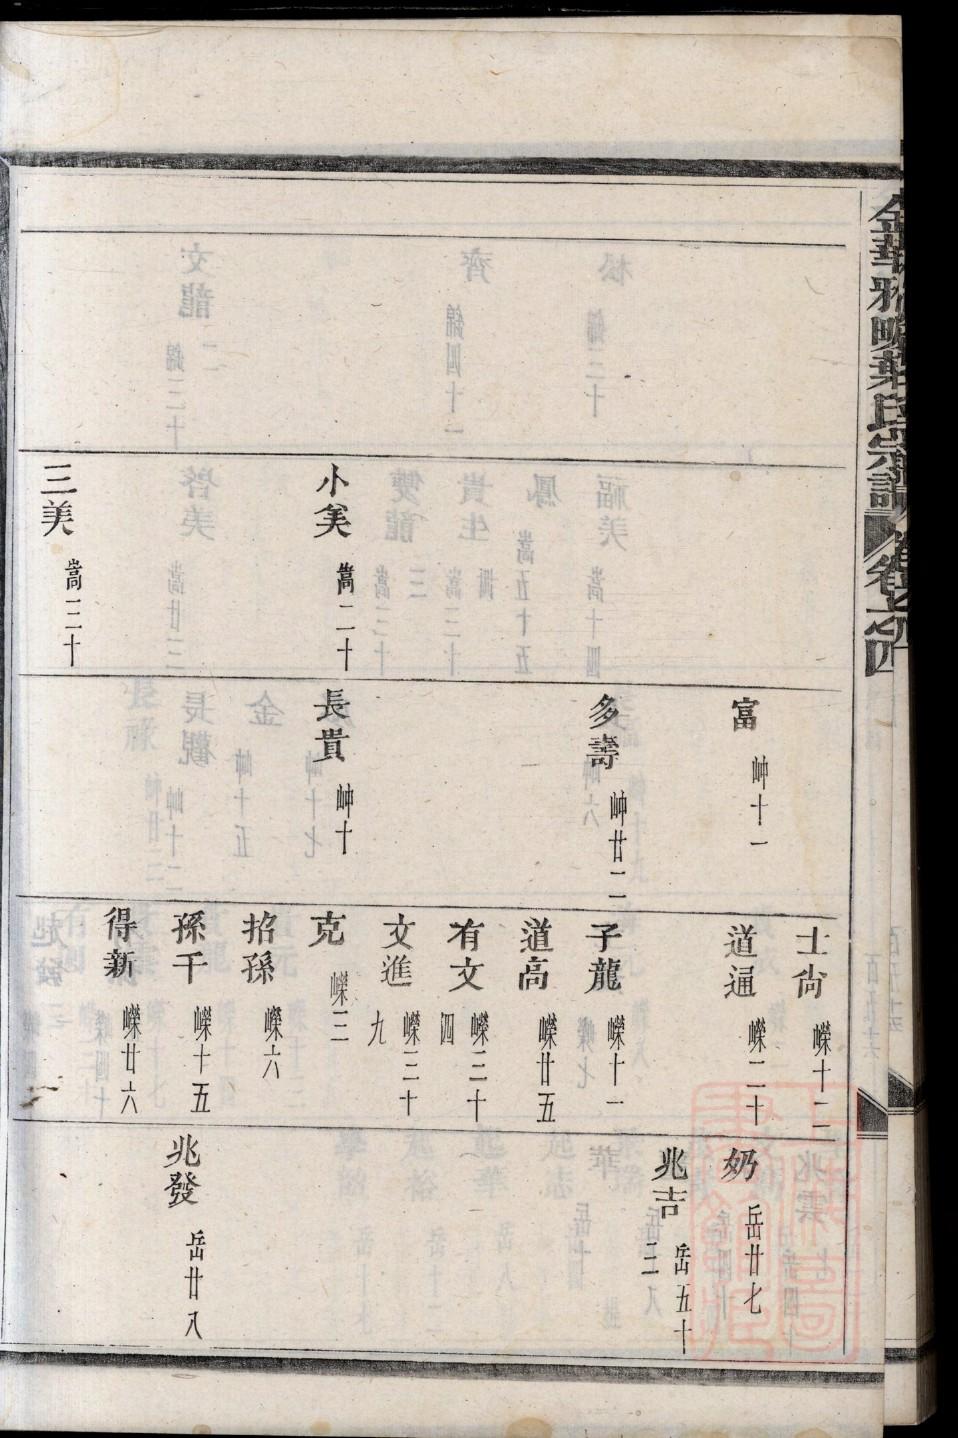 金華雅畈葉氏宗譜 卷之四
小美 嵩二十
三美 嵩三十
富 岫十一
多壽 岫廿二
長貴 岫十
士尙 嶸十二
道通 嶸二十
子龍 嶸十一
道高 嶸廿五
有文 嶸三十四
文進 嶸三十九
克 嶸三
招孫 嶸六
孫千 嶸十五
得新 嶸廿六
奶 岳廿七
兆吉 岳五十三
兆發 岳廿八